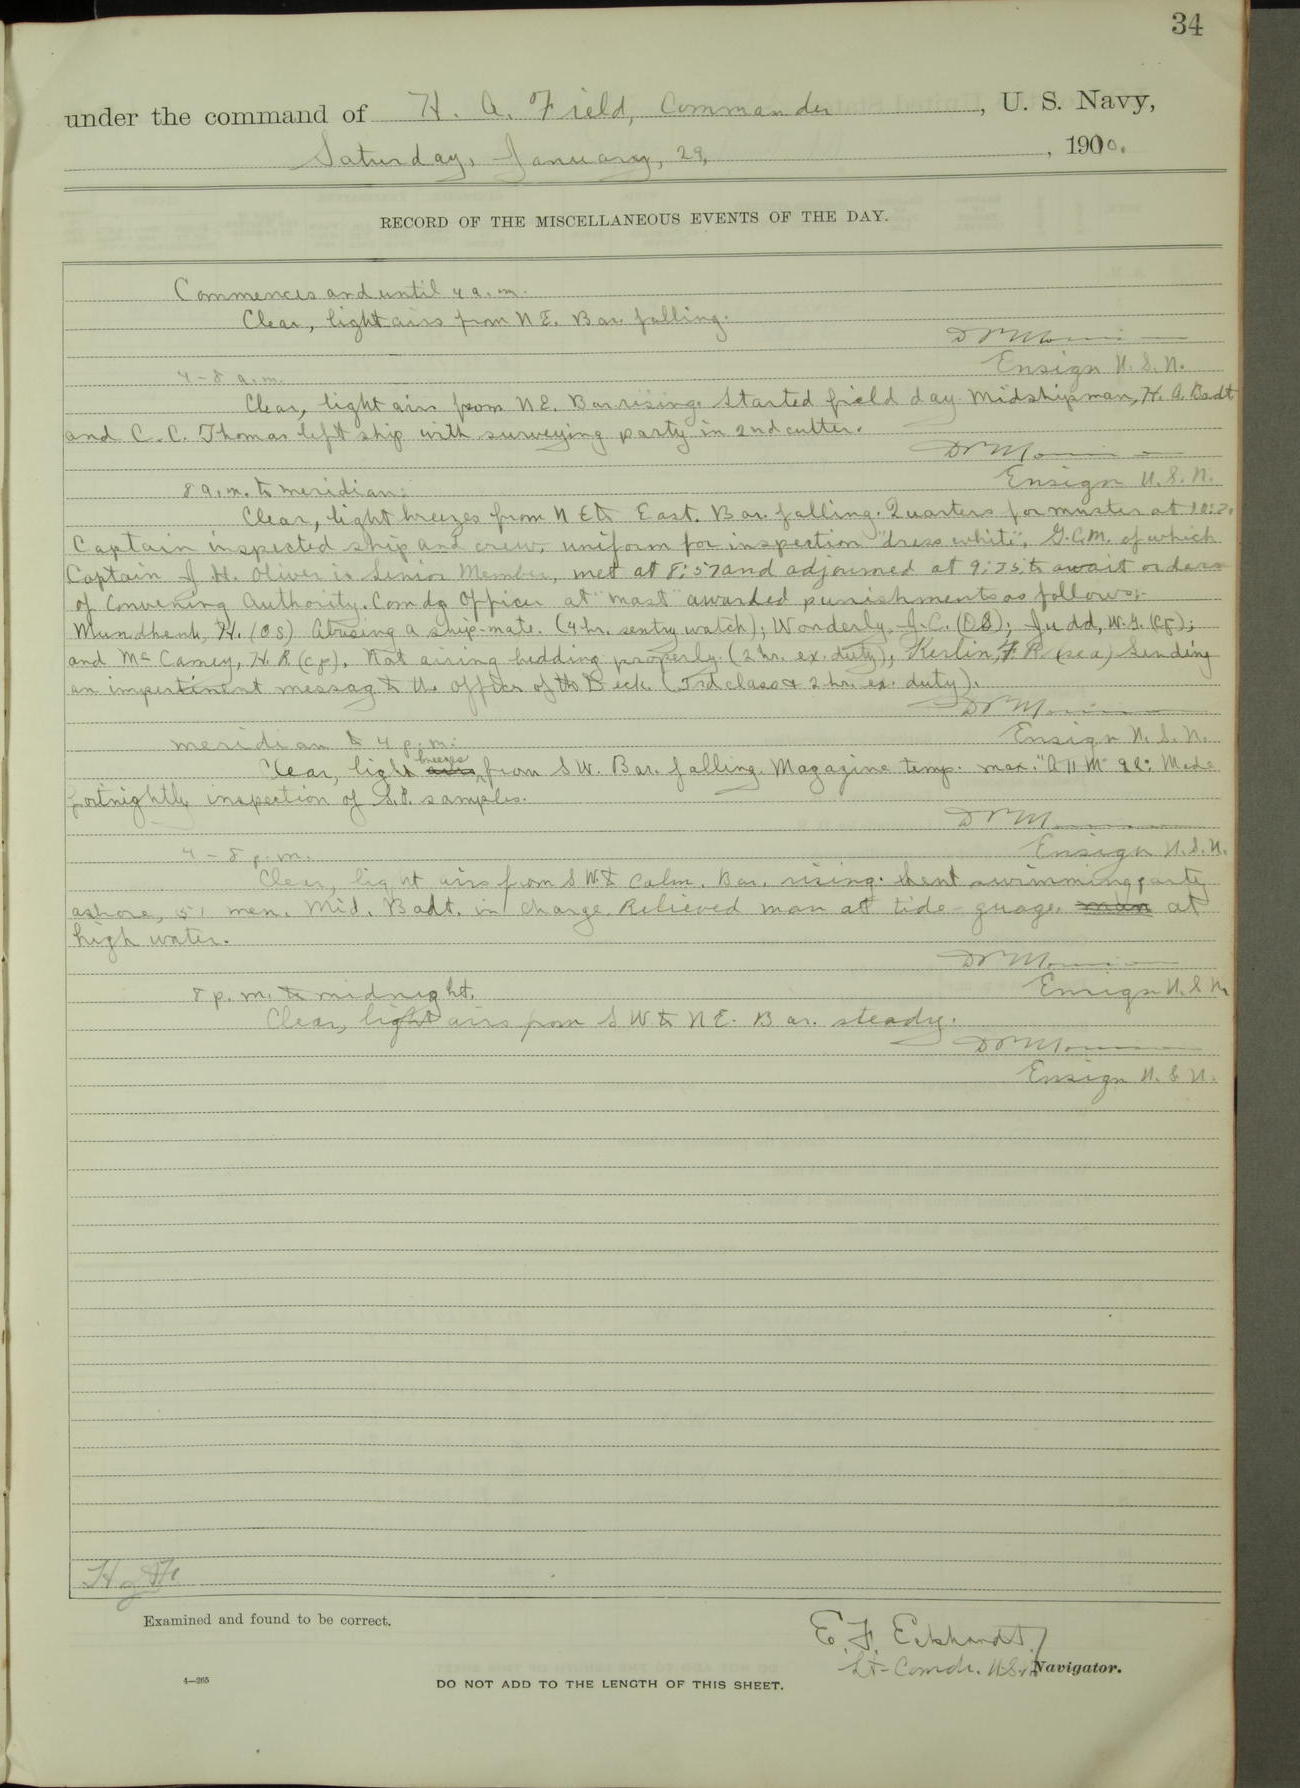 34
under the command of H. A. Field, Commander, U. S. Navy,
Saturday, January, 29, 1900.
RECORD OF THE MISCELLANEOUS EVENTS OF THE DAY.
Commences and until 4 a. m.
Clear, light airs from N E. Bar. falling.
Ensign U. S. N.
4 - 8 a. m.
Clear, light airs from N E. Bar rising. Started field day Midshipman, H. A. Badt
and C. C. Thomas left ship with surveying party in 2nd cutter.
Ensign U. S. N.
8 a. m. to meridian:
Clear, light breezes from N E to East. Bar. falling. Quarters for muster at
Captain inspected ship and crew, uniform for inspection "dress white". G.C.M. of which
Captain J. H. Oliver is Senior Member, met at 8:57 and adjourned at 9:25 to await orders
of Convening Authority. Comdg Officer at "mast" awarded punishments as follows:-
Mundhenk, H. (OS) Abusing a ship-mate. (4 hr. sentry watch); Wonderly, J. C. (OS); Judd, W. G. (Cp);
and McCamey, H. R (Cp). Not airing bedding properly. (2 hr. ex. duty), Kerlin, F. R. (sea) Sending
an impertinent messag to the Officer of the Deck. (3rd class & 2 hr. ex. duty).
Ensign U. S. N.
meridian to 4 p. m:
Clear, light airs breezes from S W. Bar. falling. Magazine temp. max. "A 11 M" 92: Made
fortnightly inspection of S.P. samples.
Ensign U. S. N.
4 - 8 p. m.
Clear, light airs from S W to Calm. Bar. rising. Sent swimming party
ashore, 51 men. Mid. Badt. in charge. Relieved man at tide - guage. man at
high water.
Ensign U. S N.
8 p. m. to midnight.
Clear, light airs from S W to N E. Bar. steady.
Ensign U. S N.
Examined and found to be correct.
E. F. Eckhardt
Lt-Comdr. U.S.N. Navigator.
4—265
DO NOT ADD TO THE LENGTH OF THIS SHEET.